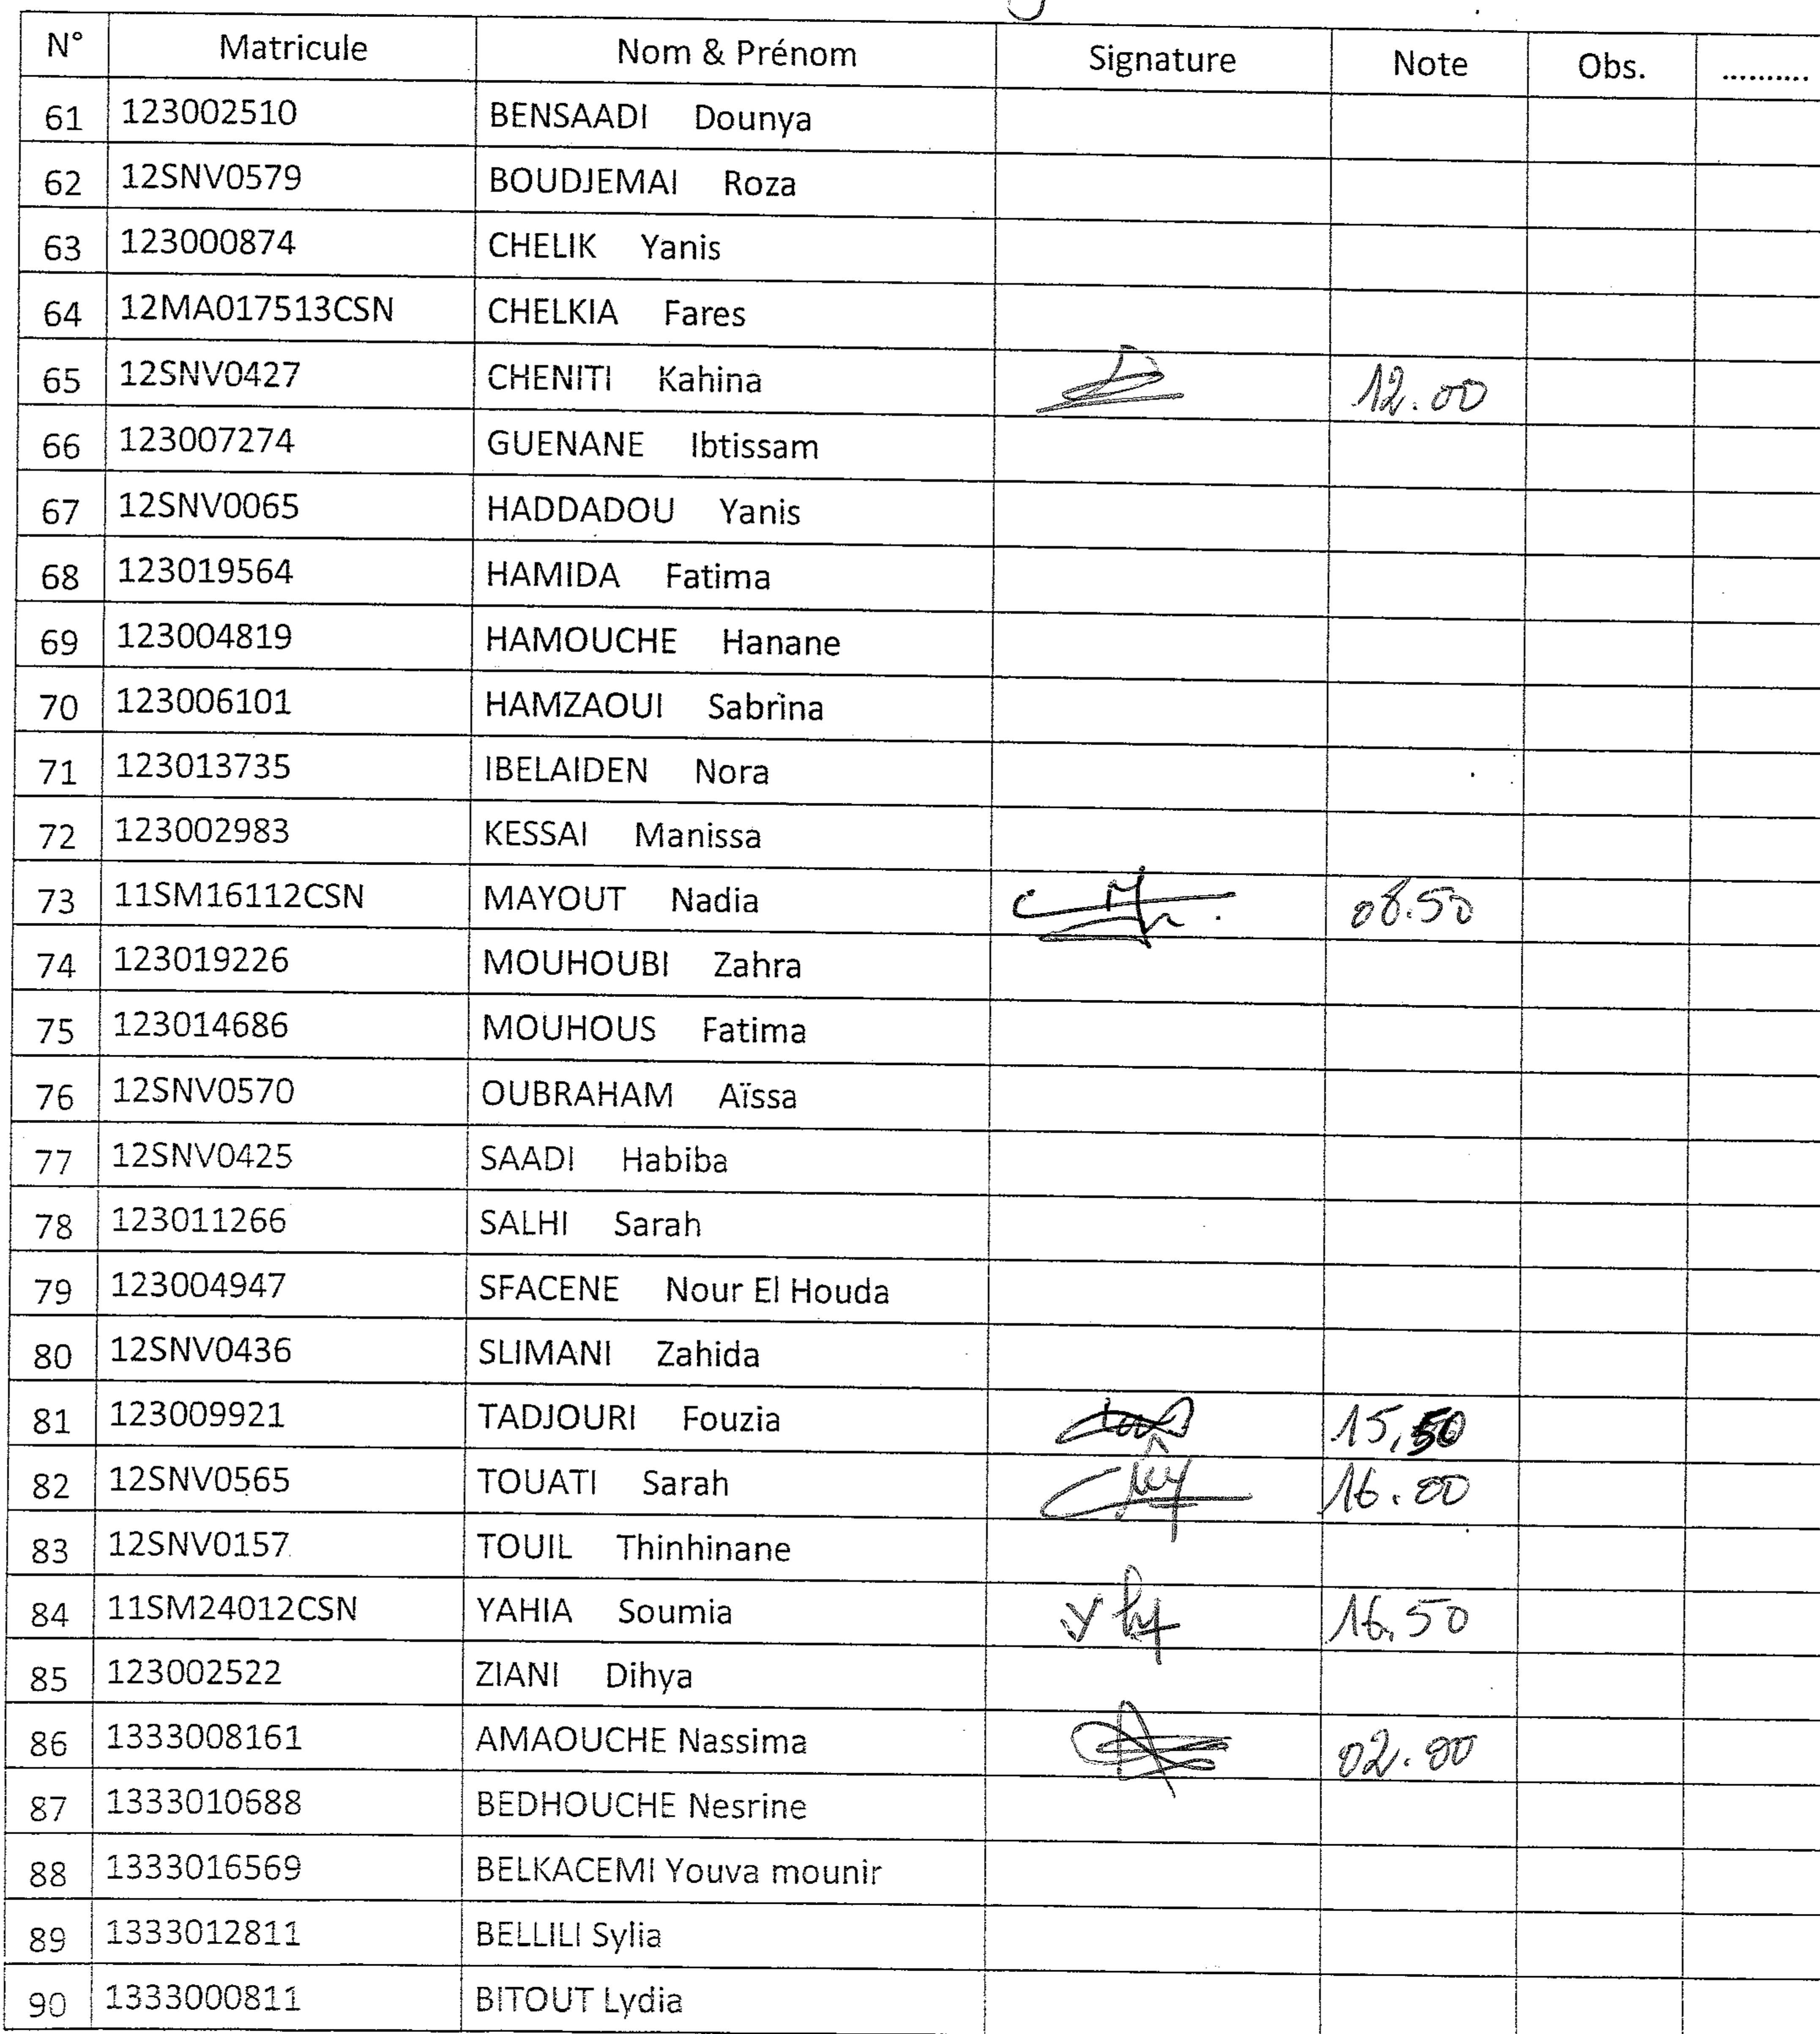 N° Matricule Nom & Prénom Signature Note Obs. ..........
61 123002510 BENSAADI Dounya
62 12SNV0579 BOUDJEMAI Roza
63 123000874 CHELIK Yanis
64 12MA017513CSN CHELKIA Fares
65 12SNV0427 CHENITI Kahina 12.00
66 123007274 GUENANE Ibtissam
67 12SNV0065 HADDADOU Yanis
68 123019564 HAMIDA Fatima
69 123004819 HAMOUCHE Hanane
70 123006101 HAMZAOUI Sabrina
71 123013735 IBELAIDEN Nora
72 123002983 KESSAI Manissa
73 11SM16112CSN MAYOUT Nadia 08.50
74 123019226 MOUHOUBI Zahra
75 123014686 MOUHOUS Fatima
76 12SNV0570 OUBRAHAM Aïssa
77 12SNV0425 SAADI Habiba
78 123011266 SALHI Sarah
79 123004947 SFACENE Nour El Houda
80 12SNV0436 SLIMANI Zahida
81 123009921 TADJOURI Fouzia 15,50
82 12SNV0565 TOUATI Sarah 16.00
83 12SNV0157 TOUIL Thinhinane
84 11SM24012CSN YAHIA Soumia 16,50
85 123002522 ZIANI Dihya
86 1333008161 AMAOUCHE Nassima 02.00
87 1333010688 BEDHOUCHE Nesrine
88 1333016569 BELKACEMI Youva mounir
89 1333012811 BELLILI Sylia
90 1333000811 BITOUT Lydia